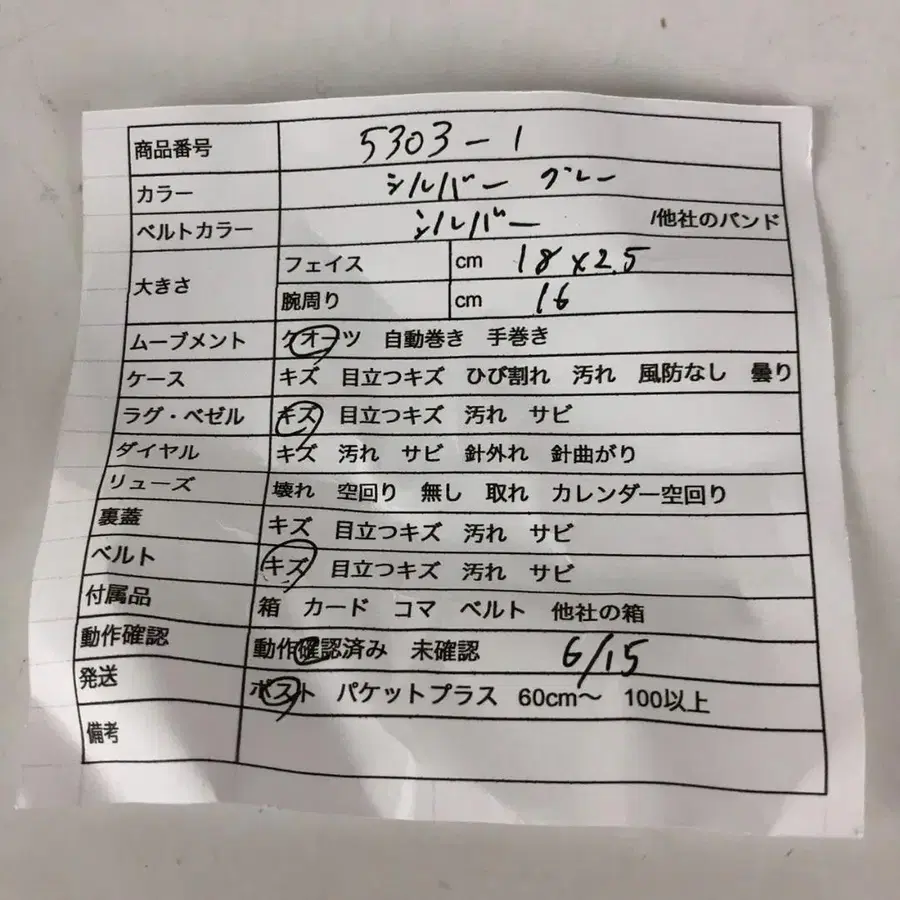 商品番号 5303-1
カラー シルバー グレー
ベルトカラー シルバー /他社のバンド
大きさ フェイス cm 18×2.5
腕周り cm 16
ムーブメント クオーツ 自動巻き 手巻き
ケース キズ 目立つキズ ひび割れ 汚れ 風防なし 曇り
ラグ・ベゼル キズ 目立つキズ 汚れ サビ
ダイヤル キズ 汚れ サビ 針外れ 針曲がり
リューズ 壊れ 空回り 無し 取れ カレンダー空回り
裏蓋 キズ 目立つキズ 汚れ サビ
ベルト キズ 目立つキズ 汚れ サビ
付属品 箱 カード コマ ベルト 他社の箱
動作確認 動作確認済み 未確認 6/15
発送 ポスト パケットプラス 60cm〜 100以上
備考